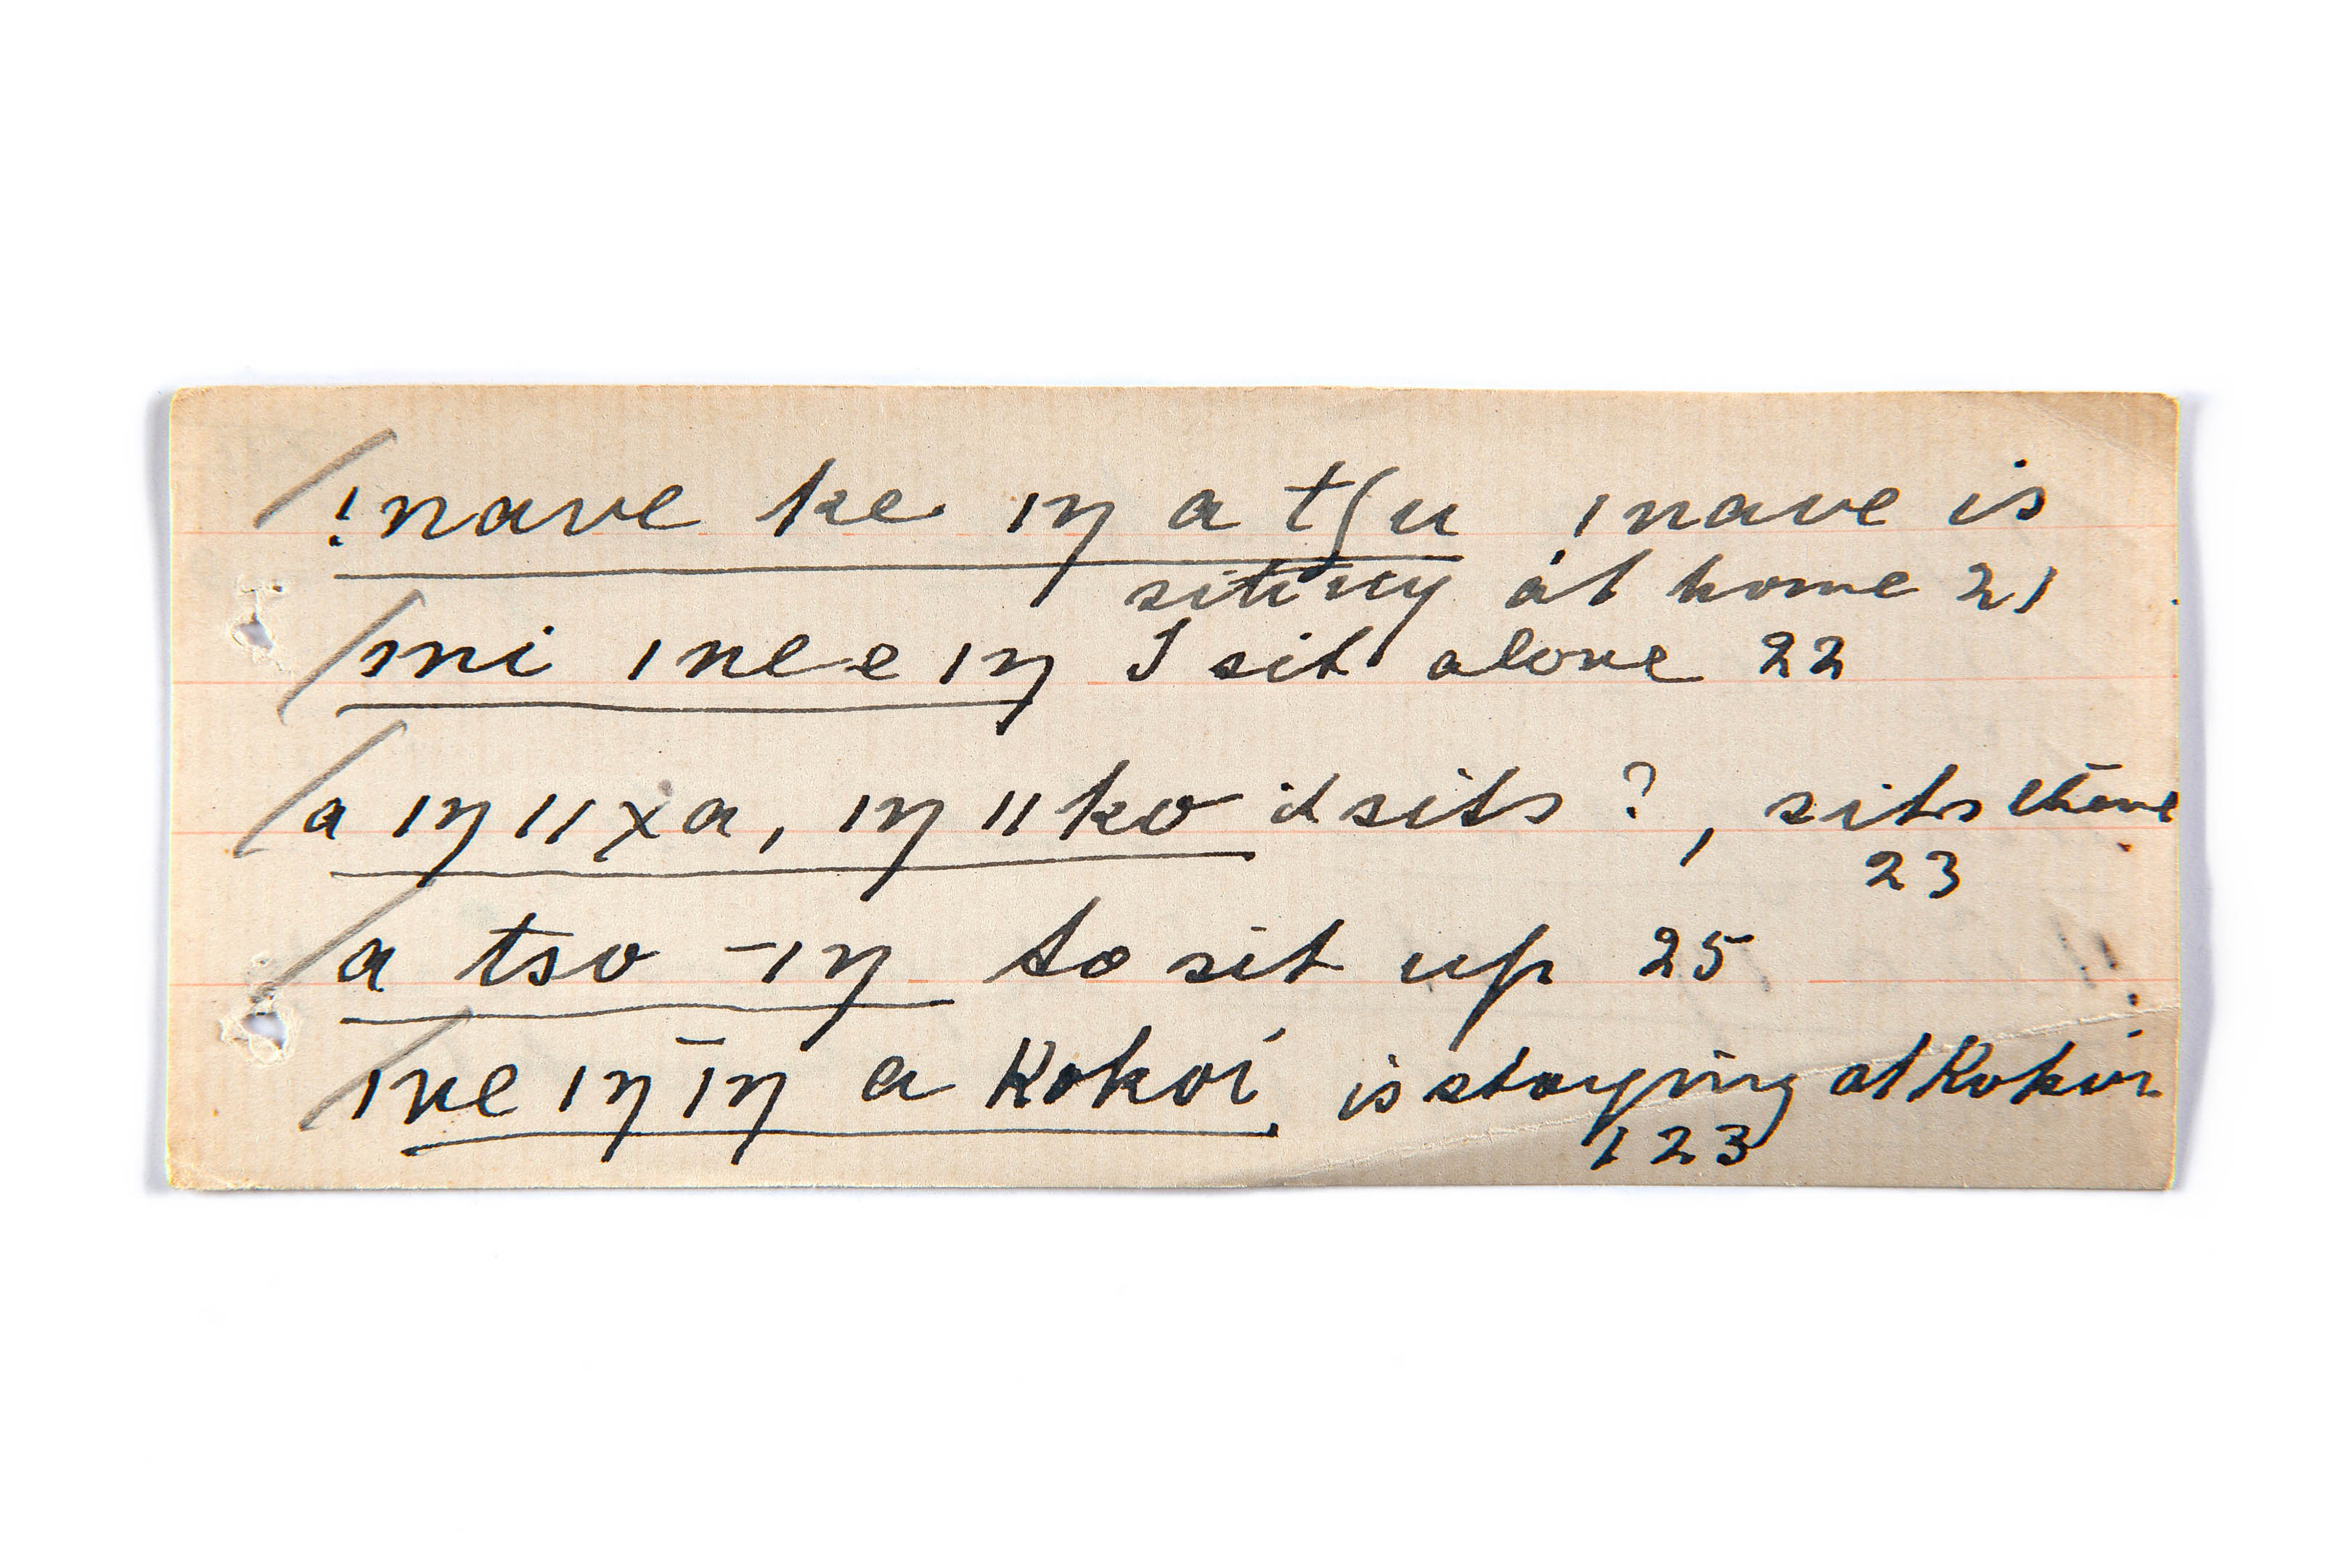 !nave ke ıŋ a tʃu !nave is
sitting at home 21
mi ınee ıŋ I sit alone 22
a ıŋ ıı xa, ıŋ ıı ko it sits ?, sits there
23
a tso –ıŋ to sit up 25
ıne ıŋ īŋ a Kokoi is staying at Kokoi
123